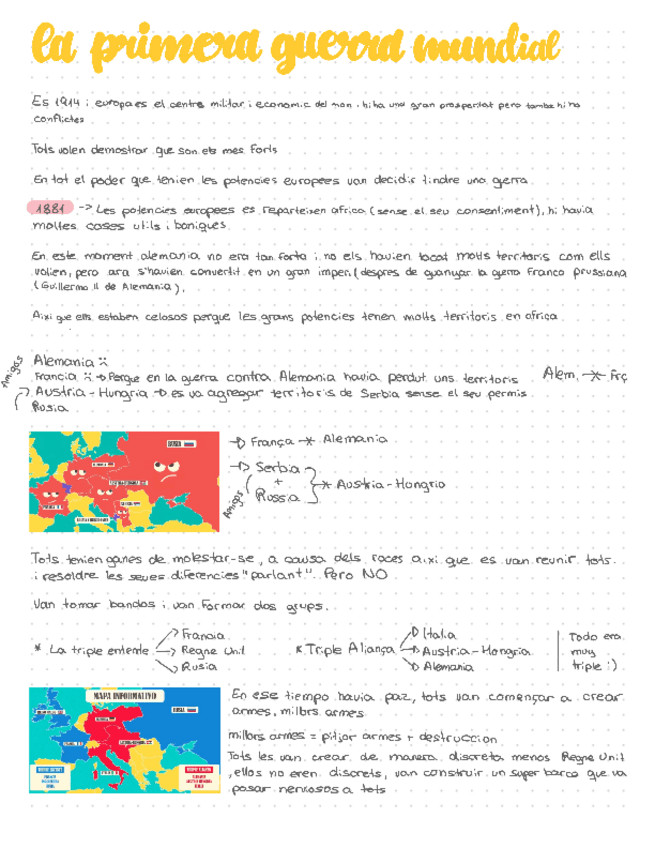 la primera guerra mundial
Es 1914 i europa es el centre militar i economic del mon. hi ha una gran prosperitat pero tambe hi ha
conflictes
Tots volen demostrar que son els mes forts
En tot el poder que tenien les potencies europees van decidir tindre una gerra
1881 -> Les potencies europees es reparteixen africa (sense el seu consentiment), hi havia
moltes coses utils i boniques
En este moment alemania no era tan forta i no els havien tocat molts territoris com ells
volien, pero ara s'havien convertit en un gran imperi (despres de guanyar la guerra Franco prussiana
(Guillermo II de Alemania).
Aixi que ells estaben celosos perque les grans potencies tenen molts territoris en africa
Alemania :(
Amigos
Francia :( -> Perque en la guerra contra Alemania havia perdut uns territoris
Alem. -x- Frç
Austria - Hungria -> es va agregar territoris de Serbia sense el seu permis
Rusia
-> França -x- Alemania
-> Serbia
+
Russia
x Austria - Hongria
Amigos
Tots tenien ganes de molestar-se, a causa dels roces aixi que es van reunir tots
i resoldre les seues diferencies "parlant". Pero NO
Van tomar bandos i van formar dos grups.
* La triple entente
Francia
Regne Unit
Rusia
* Triple Aliança
Italia
Austria - Hongria
Alemania
Todo era
muy
triple :)
MAPA INFORMATIVO
En ese tiempo havia pau, tots van començar a crear
armes, millors armes
millors armes = pitjor armes + destruccion
Tots les van crear de manera discreta menos Regne Unit
, ellos no eren discrets, van construir un super barco que va
posar nerviosos a tots